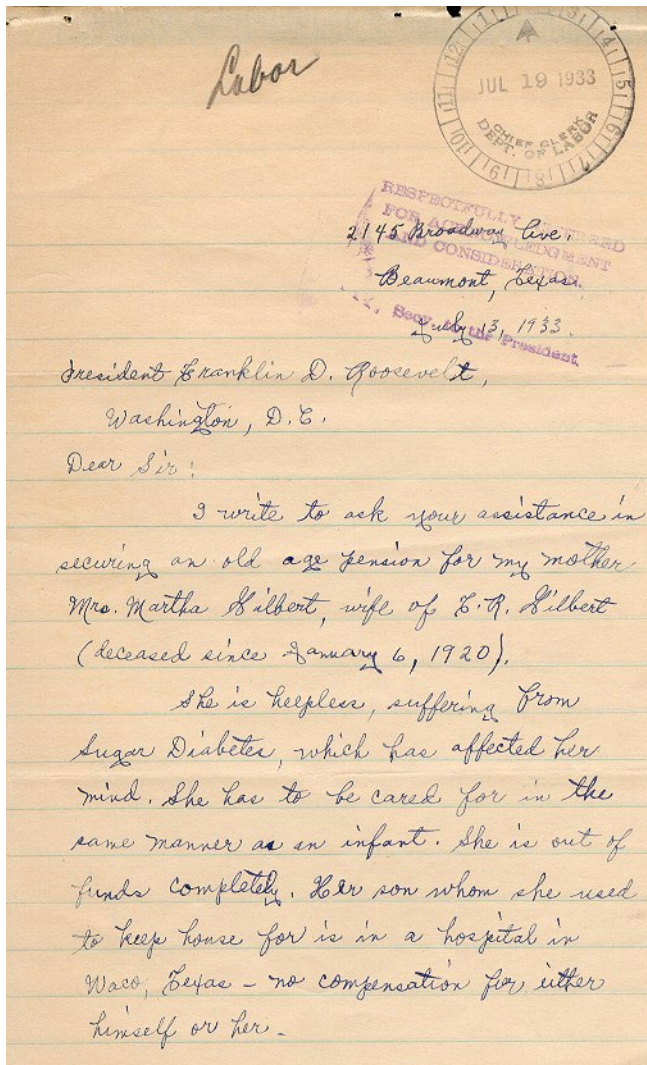 Labor
JUL 19 1933
CHIEF CLERK
DEPT. OF LABOR
RESPECTFULLY REFERRED
FOR ACKNOWLEDGMENT
AND CONSIDERATION.
Secy. to the President.
2145 Broadway Ave.
Beaumont, Texas.
July 13, 1933.
President Franklin D. Roosevelt,
Washington, D.C.
Dear Sir:
I write to ask your assistance in
securing an old age pension for my mother
Mrs. Martha Gilbert, wife of T.R. Gilbert
(deceased since January 6, 1920).
She is helpless, suffering from
Sugar Diabetes, which has affected her
mind. She has to be cared for in the
same manner as an infant. She is out of
funds completely. Her son whom she used
to keep house for is in a hospital in
Waco, Texas – no compensation for either
himself or her –